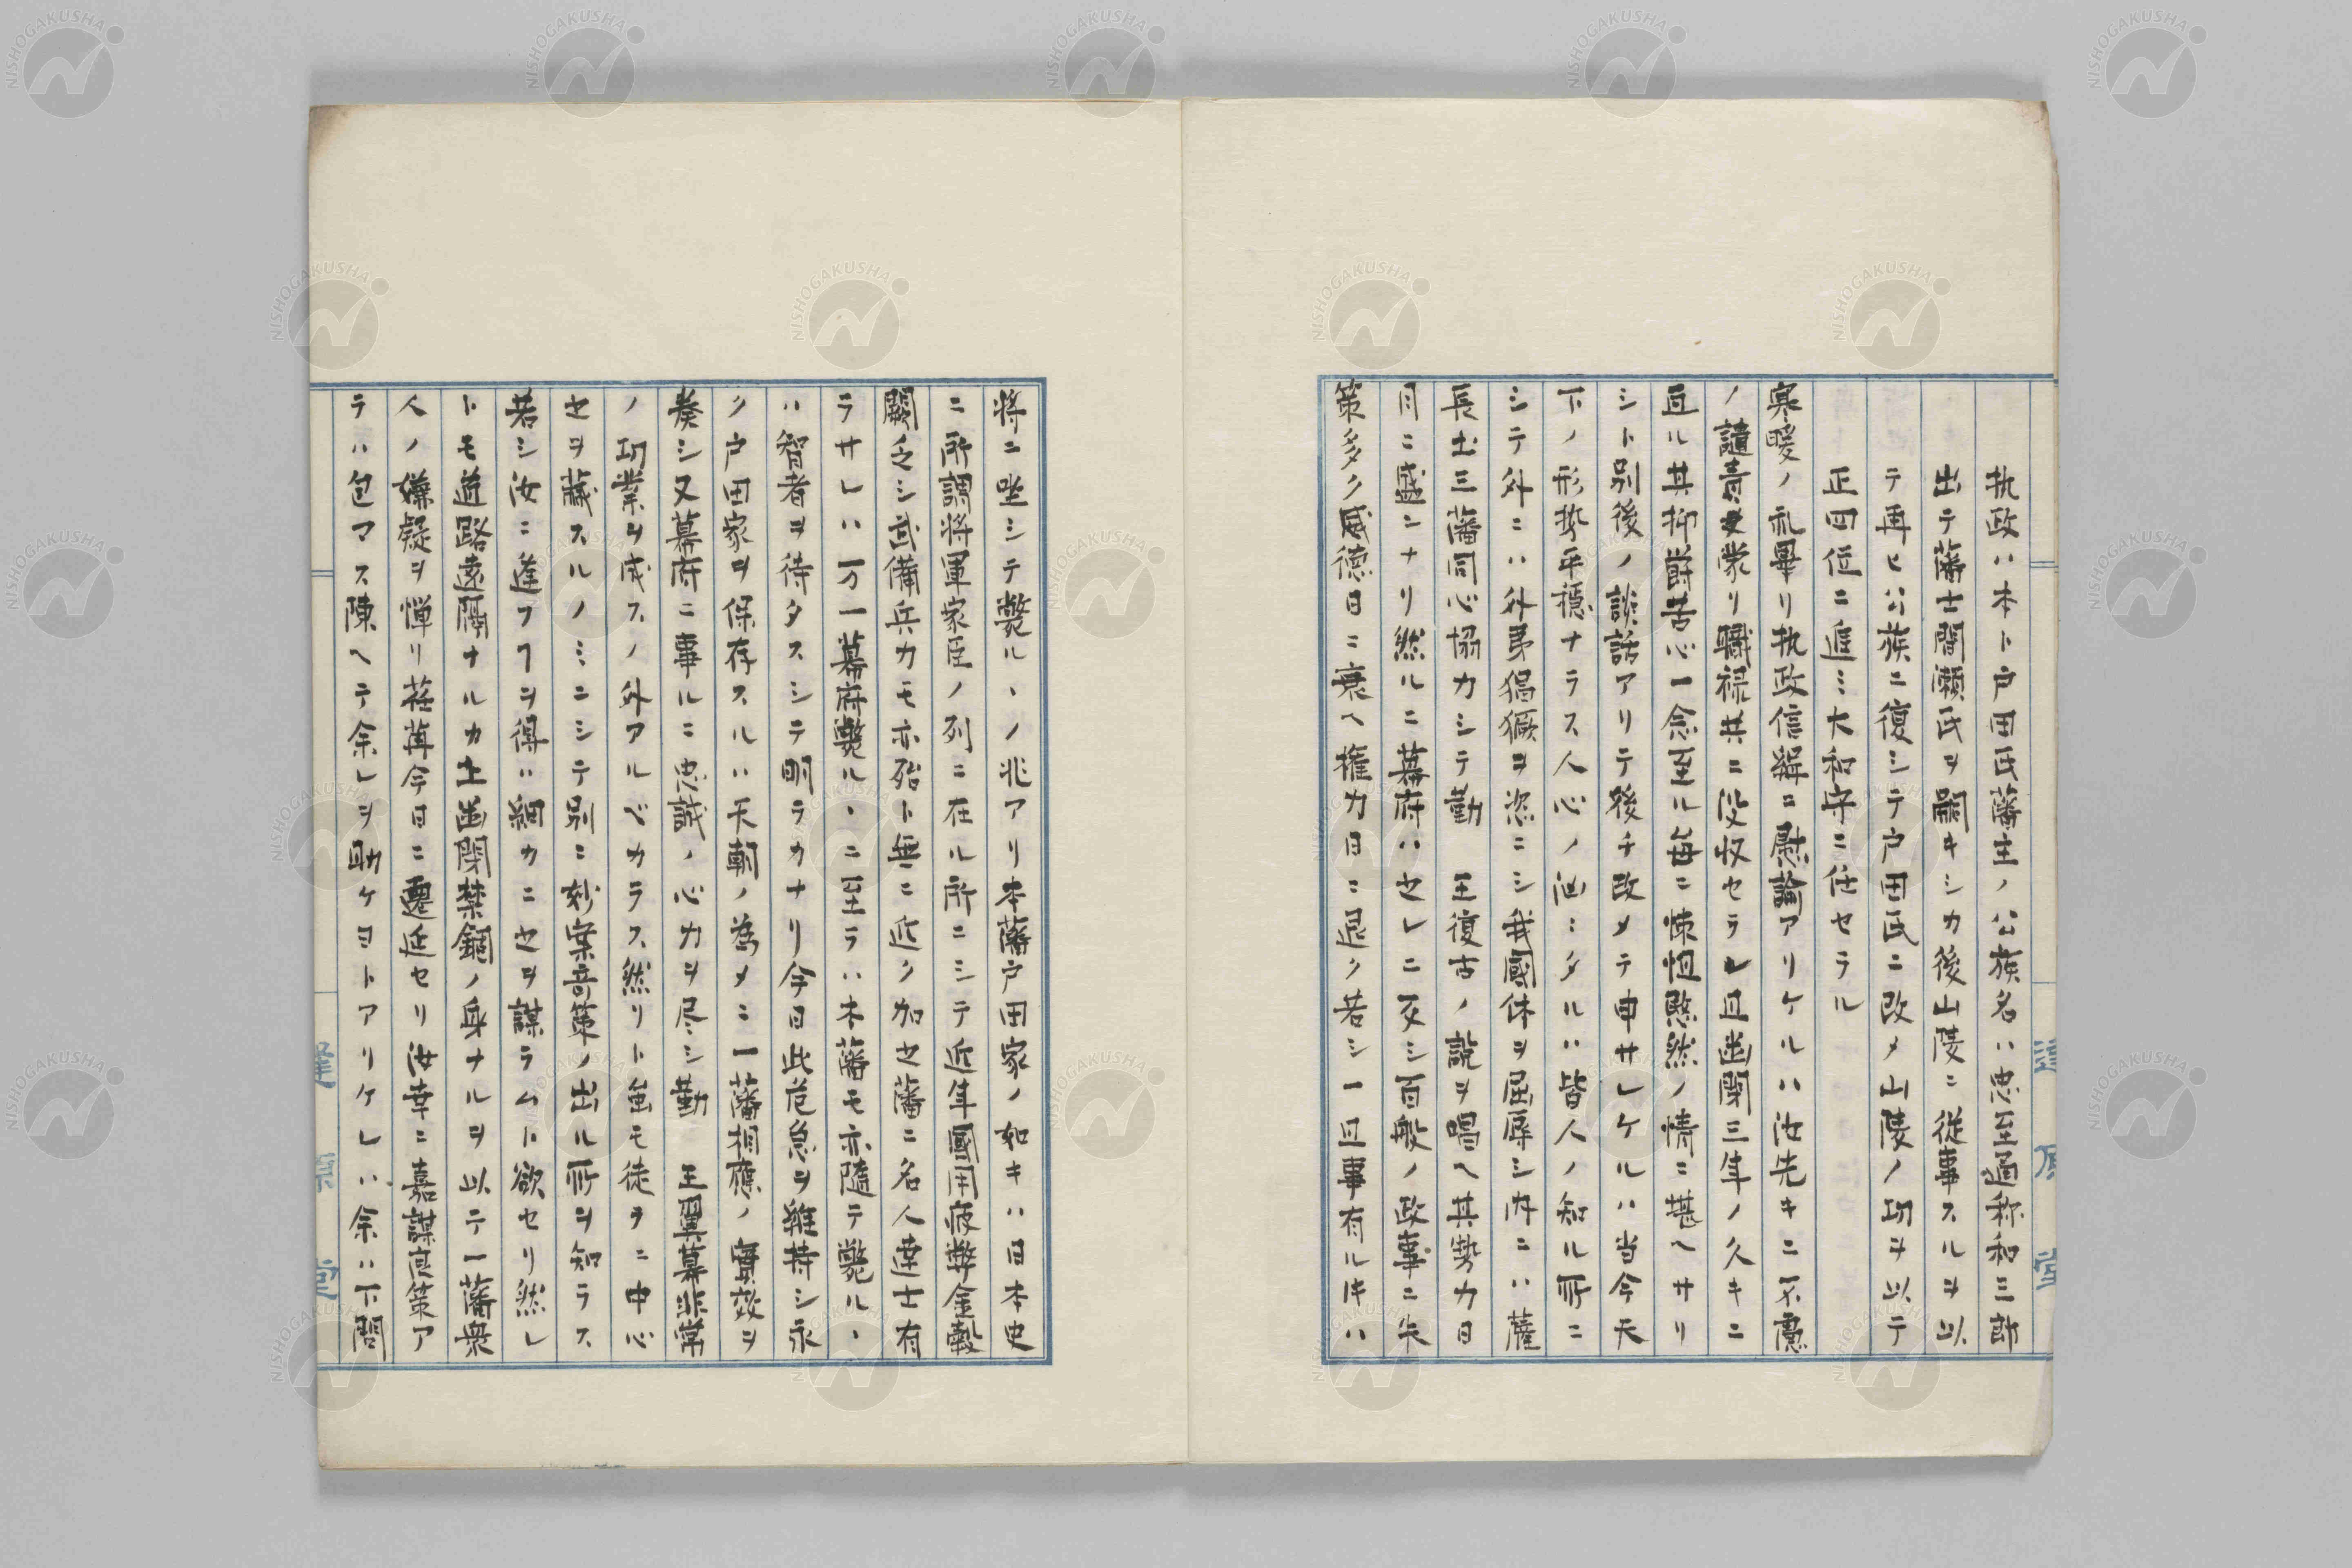 執政ハ本ト戸田氏藩主ノ公族名ハ忠至通称和三郎
出テ藩士間瀬氏ヲ嗣キシカ後山陵ニ従事スルヲ以
テ再ヒ公族ニ復シテ戸田氏ニ改メ山陵ノ功ヲ以テ
正四位ニ進ミ大和守ニ任セラル
寒暖ノ礼畢リ執政信緝ニ慰諭アリケルハ汝先キニ不慮
ノ譴責ヲ蒙リ職禄共ニ没収セラレ且幽閉三年ノ久キニ
亘ル其抑欝苦心一念至ル毎ニ悚怛愍然ノ情ニ堪ヘサリ
シト別後ノ談話アリテ後チ改メテ申サレケルハ当今天
下ノ形勢平穏ナラス人心ノ洶ミタルハ皆人ノ知ル所ニ
シテ外ニハ外夷猖獗ヲ恣ニシ我國体ヲ屈辱シ内ニハ薩
長土三藩同心協力シテ勤　王復古ノ説ヲ唱ヘ其勢力日
月ニ盛ンナリ然ルニ幕府ハ之レニ反シ百般ノ政事ニ失
策多ク威徳日ニ衰ヘ権力日ニ退ク若シ一旦事有ルキハ
将ニ坐シテ斃ルヽノ兆アリ本藩戸田家ノ如キハ日本史
ニ所謂将軍家臣ノ列ニ在ル所ニシテ近年國用疲弊金穀
闕乏シ武備兵力モ亦殆ト無ニ近ク加之藩ニ名人達士有
ラサレハ万一幕府斃ルヽニ至ラハ本藩モ亦随テ斃ルヽ
ハ智者ヲ待タスシテ明ラカナリ今日此危急ヲ維持シ永
ク戸田家ヲ保存スルハ天朝ノ為メニ一藩相應ノ實效ヲ
奏シ又幕府ニ事ルニ忠誠ノ心力ヲ尽シ勤　王翼幕非常
ノ功業ヲ成スノ外アルベカラス然リト虽モ徒ラニ中心
之ヲ蔵スルノミニシテ別ニ妙案奇策ノ出ル所ヲ知ラス
若シ汝ニ逢フヿヲ得ハ細カニ之ヲ謀ラムト欲セリ然レ
トモ道路遠隔ナルカ上幽閉禁錮ノ身ナルヲ以テ一藩衆
人ノ嫌疑ヲ憚リ荏苒今日ニ遷延セリ汝幸ニ嘉謀良策ア
ラハ包マス陳ヘテ余レヲ助ケヨトアリケレハ余ハ下問